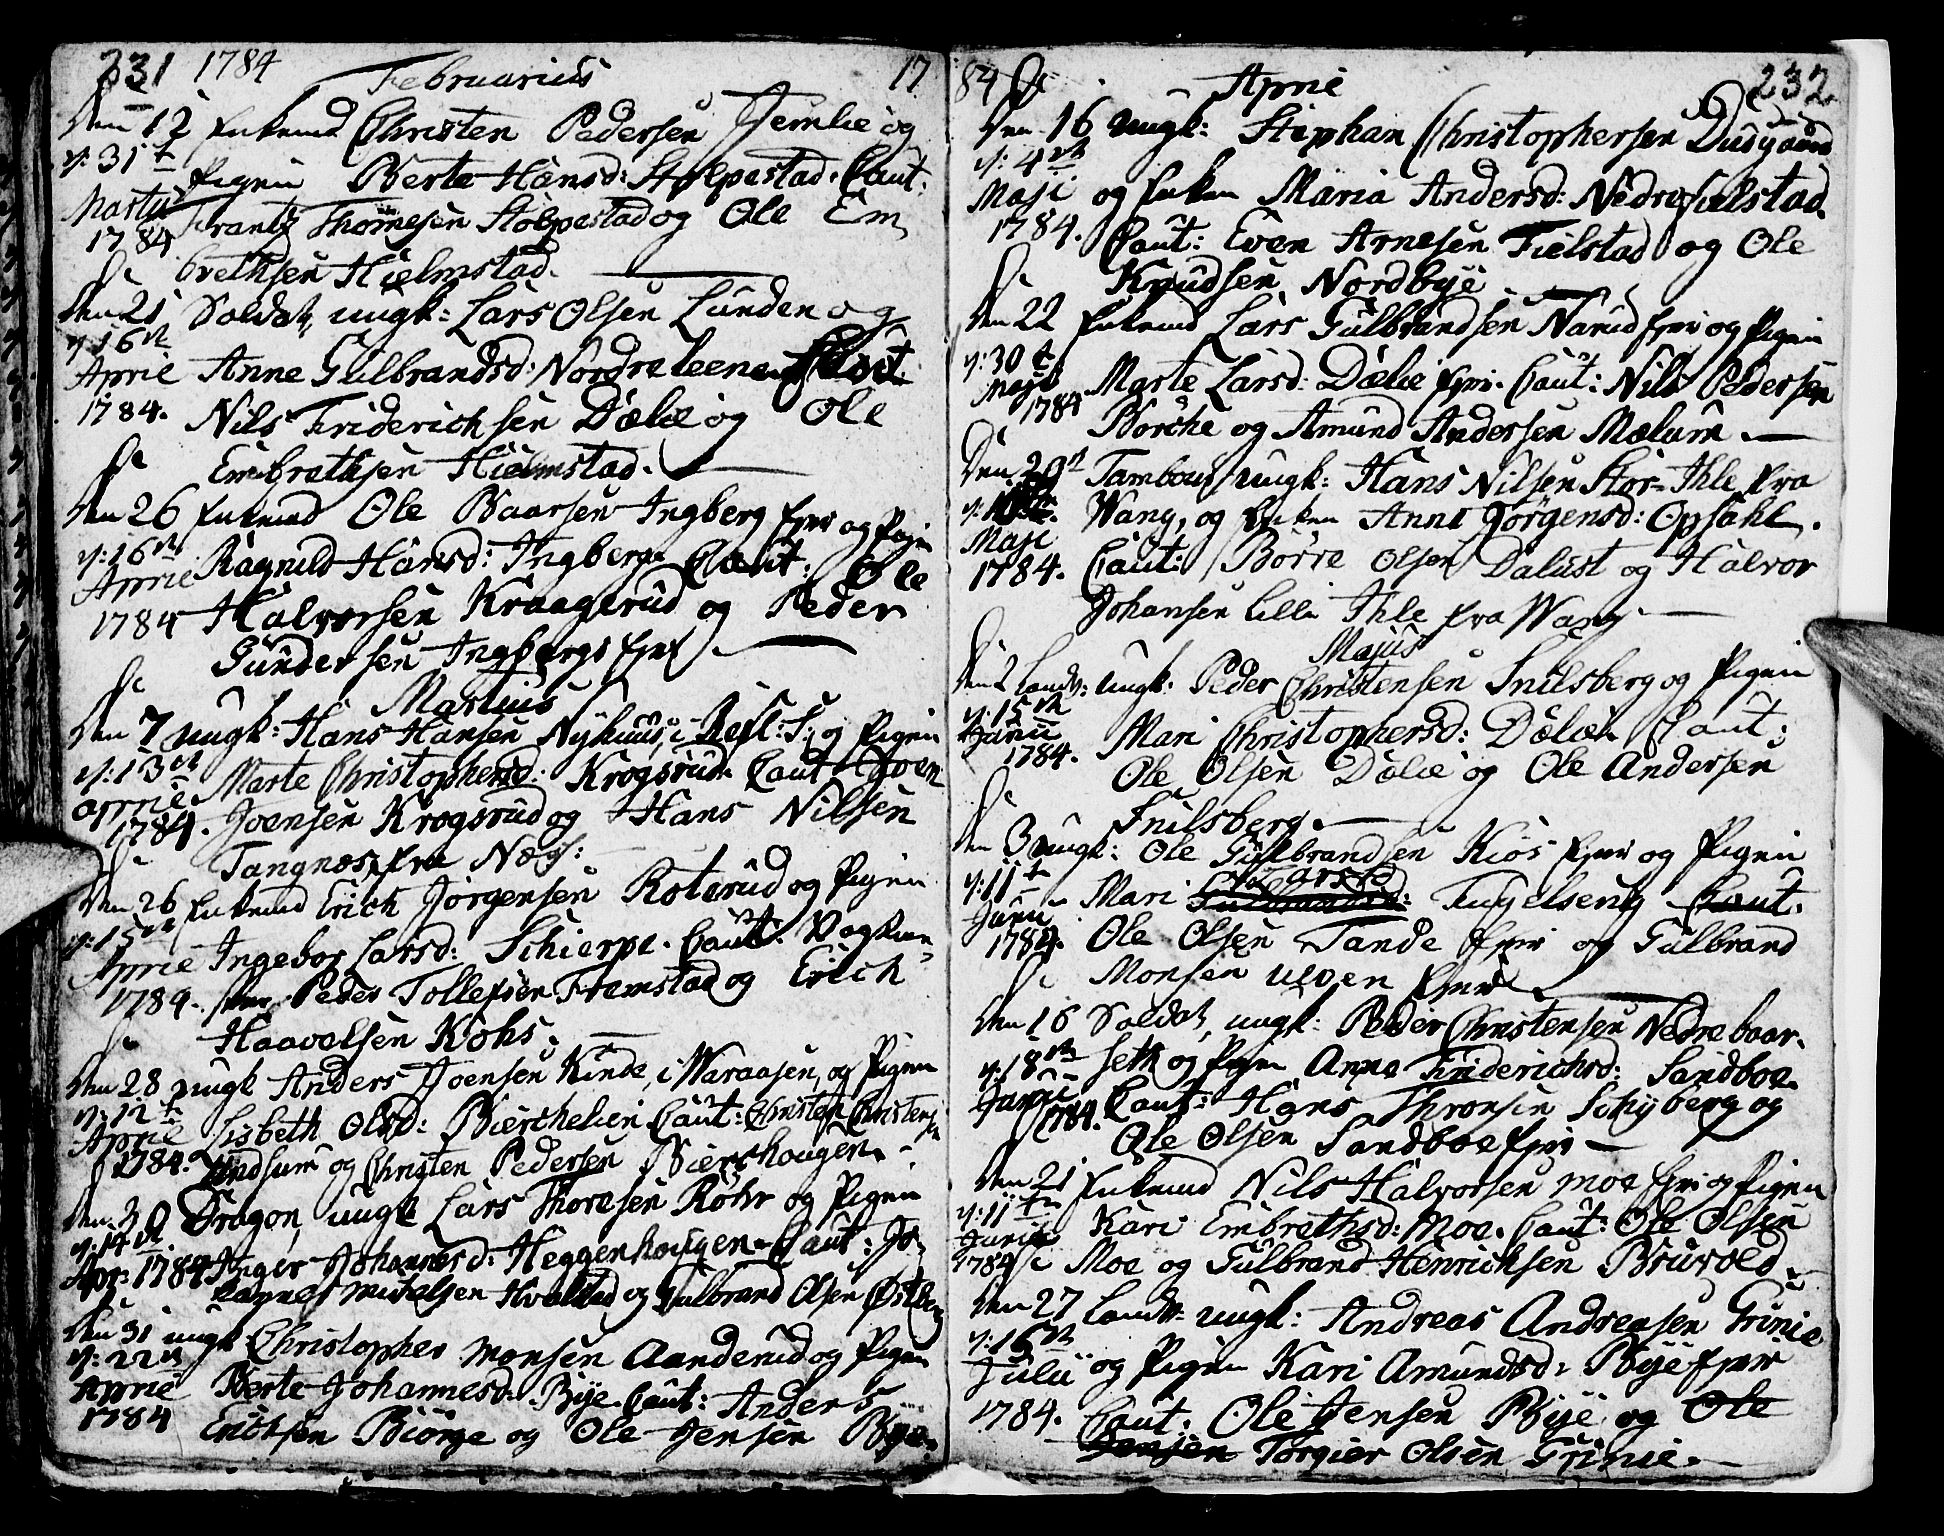 231 1784 Februarius 17
Den 12 Enkemd Christen Pedersen Jemlie og
v: 31t Pigen Berte Hansd: Stolpestad. Caut:
Martii Frantz Thomesen Stolpestad og Ole Em
1784 brethsen Hielmstad.
Den 21 Soldat, ungk: Lars Olsen Lunden og
v: 16de
Aprie Anne Gulbrandsd: Nordreteene Caut
1784. Nils Friderichsen Dælie og Ole
Embrethsen Hielmstad.
Den 26 Enkemd Ole Baarsen Ingberg Ejer og Pigen
v: 16de Ragnild Hansd: Ingberg Caut: Ole
Aprie
1784 Halvorsen Kraagerud og Peder
Gundersen Ingbergs Ejer
Martius
Den 7 ungk: Hans Hansen Nyhuus, i og Pigen
v: 13de Marte Christophersd: Krogsrud. Caut: Joen
Aprie
1784. Joensen Krogsrud og Hans Nilsen
Tangnes fra Næs:
Den 26 Enkemd Erich Jørgensen Roterud og Pigen
v: 15de
Aprie Ingebor Larsd: Schierpe. Caut:
1784. Peder Tollefsen Framstad og Erich
Haavalsen Kohs.
Den 28 ungk Anders Joensen Kinde, i Waraasen, og Pigen
v: 12t
Aprie Lisbeth Olsd: Bierchelien Caut: Christen Christensen
1784. Lindsum og Christen Pedersen Bierchougen.
Den 30 Dragon, ungk Lars Thoresen Røhr og Pigen
v: 14de
Apr: 1784 Inger Johannesd: Heggenhougen. Caut: Jo-
hannes Mikelsen Hvalstad og Gulbrand Olsen Østberg
Den 31 ungk Christopher Monsen Aanderud og Pigen
v: 22de
Aprie Berte Johannesd: Bye. Caut: Anders
1784 Erichsen Biørge og Ole Jensen Bye.
84 Aprie 232
Den 16 ungk: Stephan Christophersen Dusgaard
v: 4de
Maji og Enken Maria Andersd: Nedre Fielstad
1784. Caut: Even Arnesen Fielstad og Ole
Knudsen Nordbye
Den 22 Enkemd Lars Gulbrandsen Narud Ejer og Pigen
v: 30t
Maji Marte Larsd: Dælie Ejer. Caut: Nils Pedersen
1784 Borche og Amund Andersen Mælum.
Den 29 Tambour, ungk: Hans Nilsen Stor-Ihle fra
Wang, og Enken Anne Jørgensd: Opsahl.
Maji
1784. Caut: Børre Olsen Dalust og Halvor
Johansen Lille Ihle fra Wang.
Majus
Den 2 Landv: ungk: Peder Christensen Snilsberg og Pigen
v: 15de
Junii Mari Christophersd: Dælie Caut:
1784. Ole Olsen Dælie og Ole Andersen
Snilsberg.
Den 3 ungk: Ole Gulbrandsen Kiøs Ejer og Pigen
v: 11t Larsd
Junii Mari Gulbrandsd: Fugelseng Caut.
1784. Ole Olsen Tande Ejer og Gulbrand
Monsen Ulven Ejer
Den 16 Soldat, ungk: Peder Christensen Nedre baar-
v: 18de seth og Pigen Anne Friderichsd: Sandboe
Junii
1784. Caut: Hans Thronsen Schyberg og
Ole Olsen Sandboe Ejer
Den 21 Enkemd Nils Halvorsen Moe Ejer og Pigen
v: 11t
Junii Kari Embrethsd: Moe. Caut: Ole Olsen
1784 Moe og Gulbrand Henrichsen Bruvold.
Den 27 Landv: ungk: Andreas Andreasen Grinie
v: 16de
Julii og Pigen Kari Amundsd: Bye Ejer
1784. Caut. Ole Jensen Bye og Ole
Jensen Torgier Olsen Grinie.